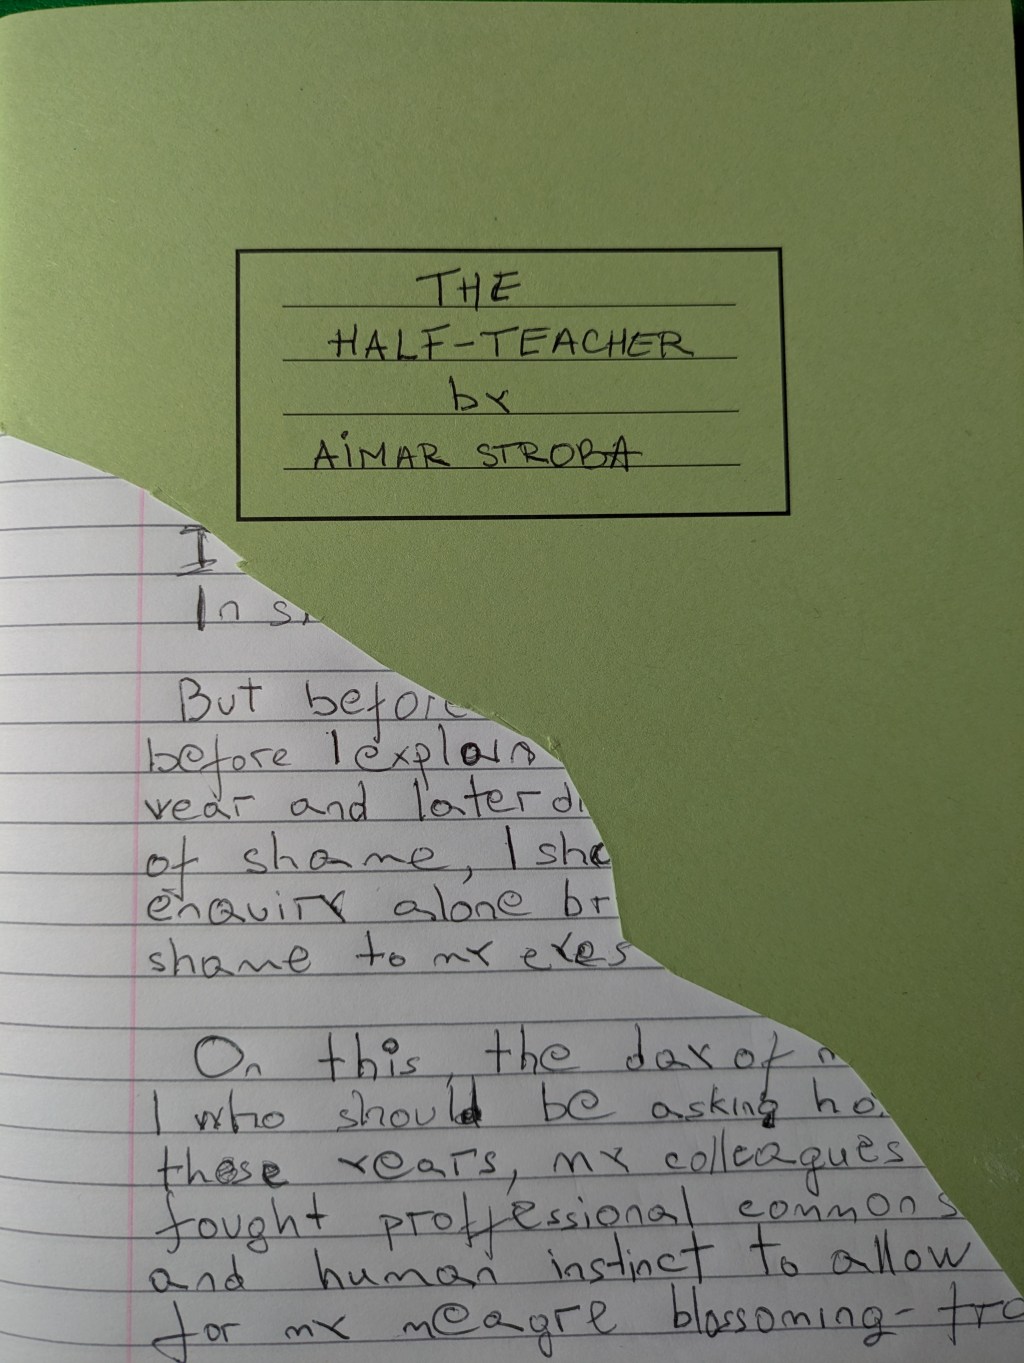 THE
HALF-TEACHER
by
AIMAR STROBA
I
In
But before
before I explain
year and later
of shame, I
enquiry alone
shame to my eyes
On this, the day of
I who should be asking
these years, my colleagues
fought proffessional common
and human instinct to allow
for my meagre blossoming-